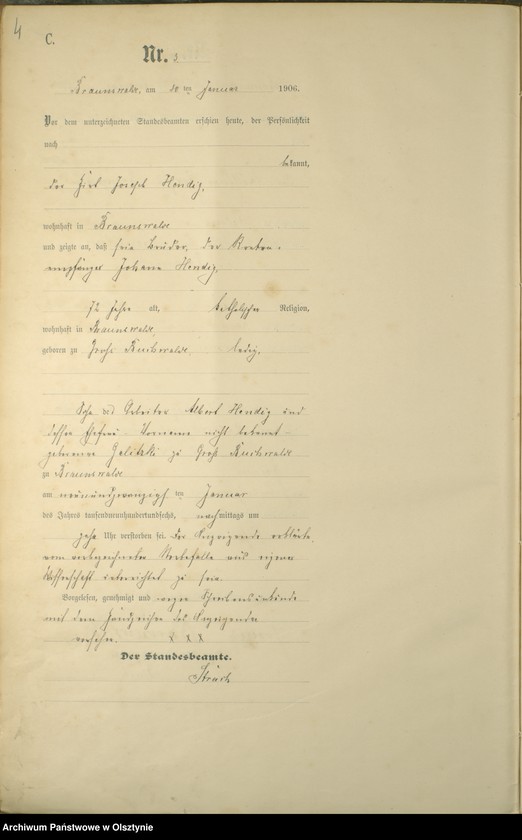 4
C.
Nr. 3
Braunswalde, am 30 ten Januar 1906.
Vor dem unterzeichneten Standesbeamten erschien heute, der Persönlichkeit
nach
bekannt,
der Hirt Joseph Hendig,
wohnhaft in Braunswalde
und zeigte an, daß sein Bruder, der Renten-
empfänger Johann Hendig,
72 Jahre alt, katholischer Religion,
wohnhaft in Braunswalde
geboren zu Groß Buchwalde, ledig,
Sohn des Arbeiter Albert Hendig und
dessen Ehefrau Vorname nicht bekannt
geborene zu Groß Buchwalde
zu Braunswalde
am neunundzwanzigsten ten Januar
des Jahres tausendneunhundertundsechs, nachmittags um
zehn Uhr verstorben sei. Der Anzeigende erklärte,
vom vorbezeichneten Sterbefalle aus eigener
Wissenschaft unterrichtet zu sein.
Vorgelesen, genehmigt und wegen Schreibensunkunde
mit dem Handzeichen des Anzeigenden
versehen. x x x
Der Standesbeamte.
Archiwum Państwowe w Olsztynie